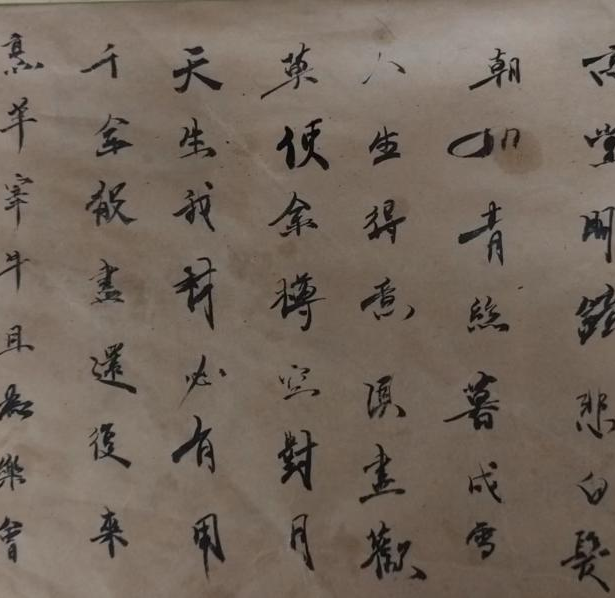 高堂明鏡悲白髮
朝如青絲暮成雪
人生得意須盡歡
莫使金樽空對月
天生我材必有用
千金散盡還復來
烹羊宰牛且為樂會